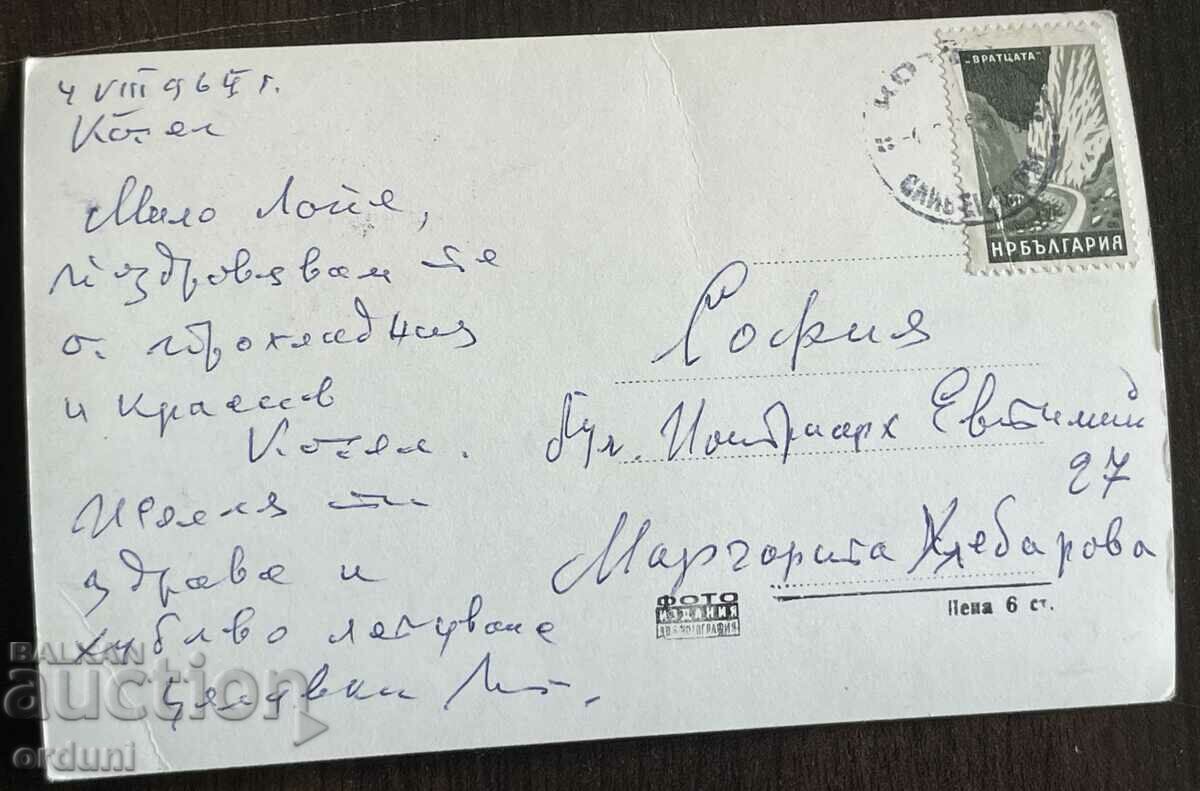 4 VIII 964 г.
Котел
Мило
поздравявам те
от прохладния
и красив
Котел.
Желая ти
здраве и
хубаво летуване
"ВРАТЦАТА"
НР БЪЛГАРИЯ
София
бул. Патриарх Евтимий
27
Маргарита Хлебарова
ФОТО
ИЗДАНИЯ
Цена 6 ст.
BALKAN
auction
orduni